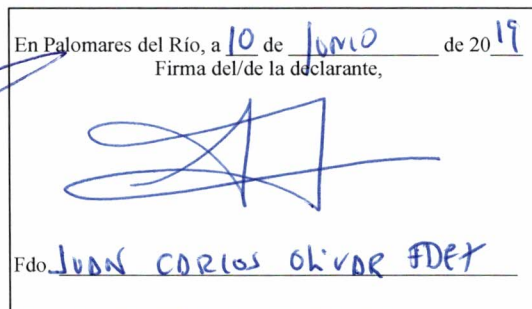 En Palomares del Río, a 10 de JUNIO de 2019
Firma del/de la declarante,
Fdo. JUAN CARLOS OLIVAR FDEZ